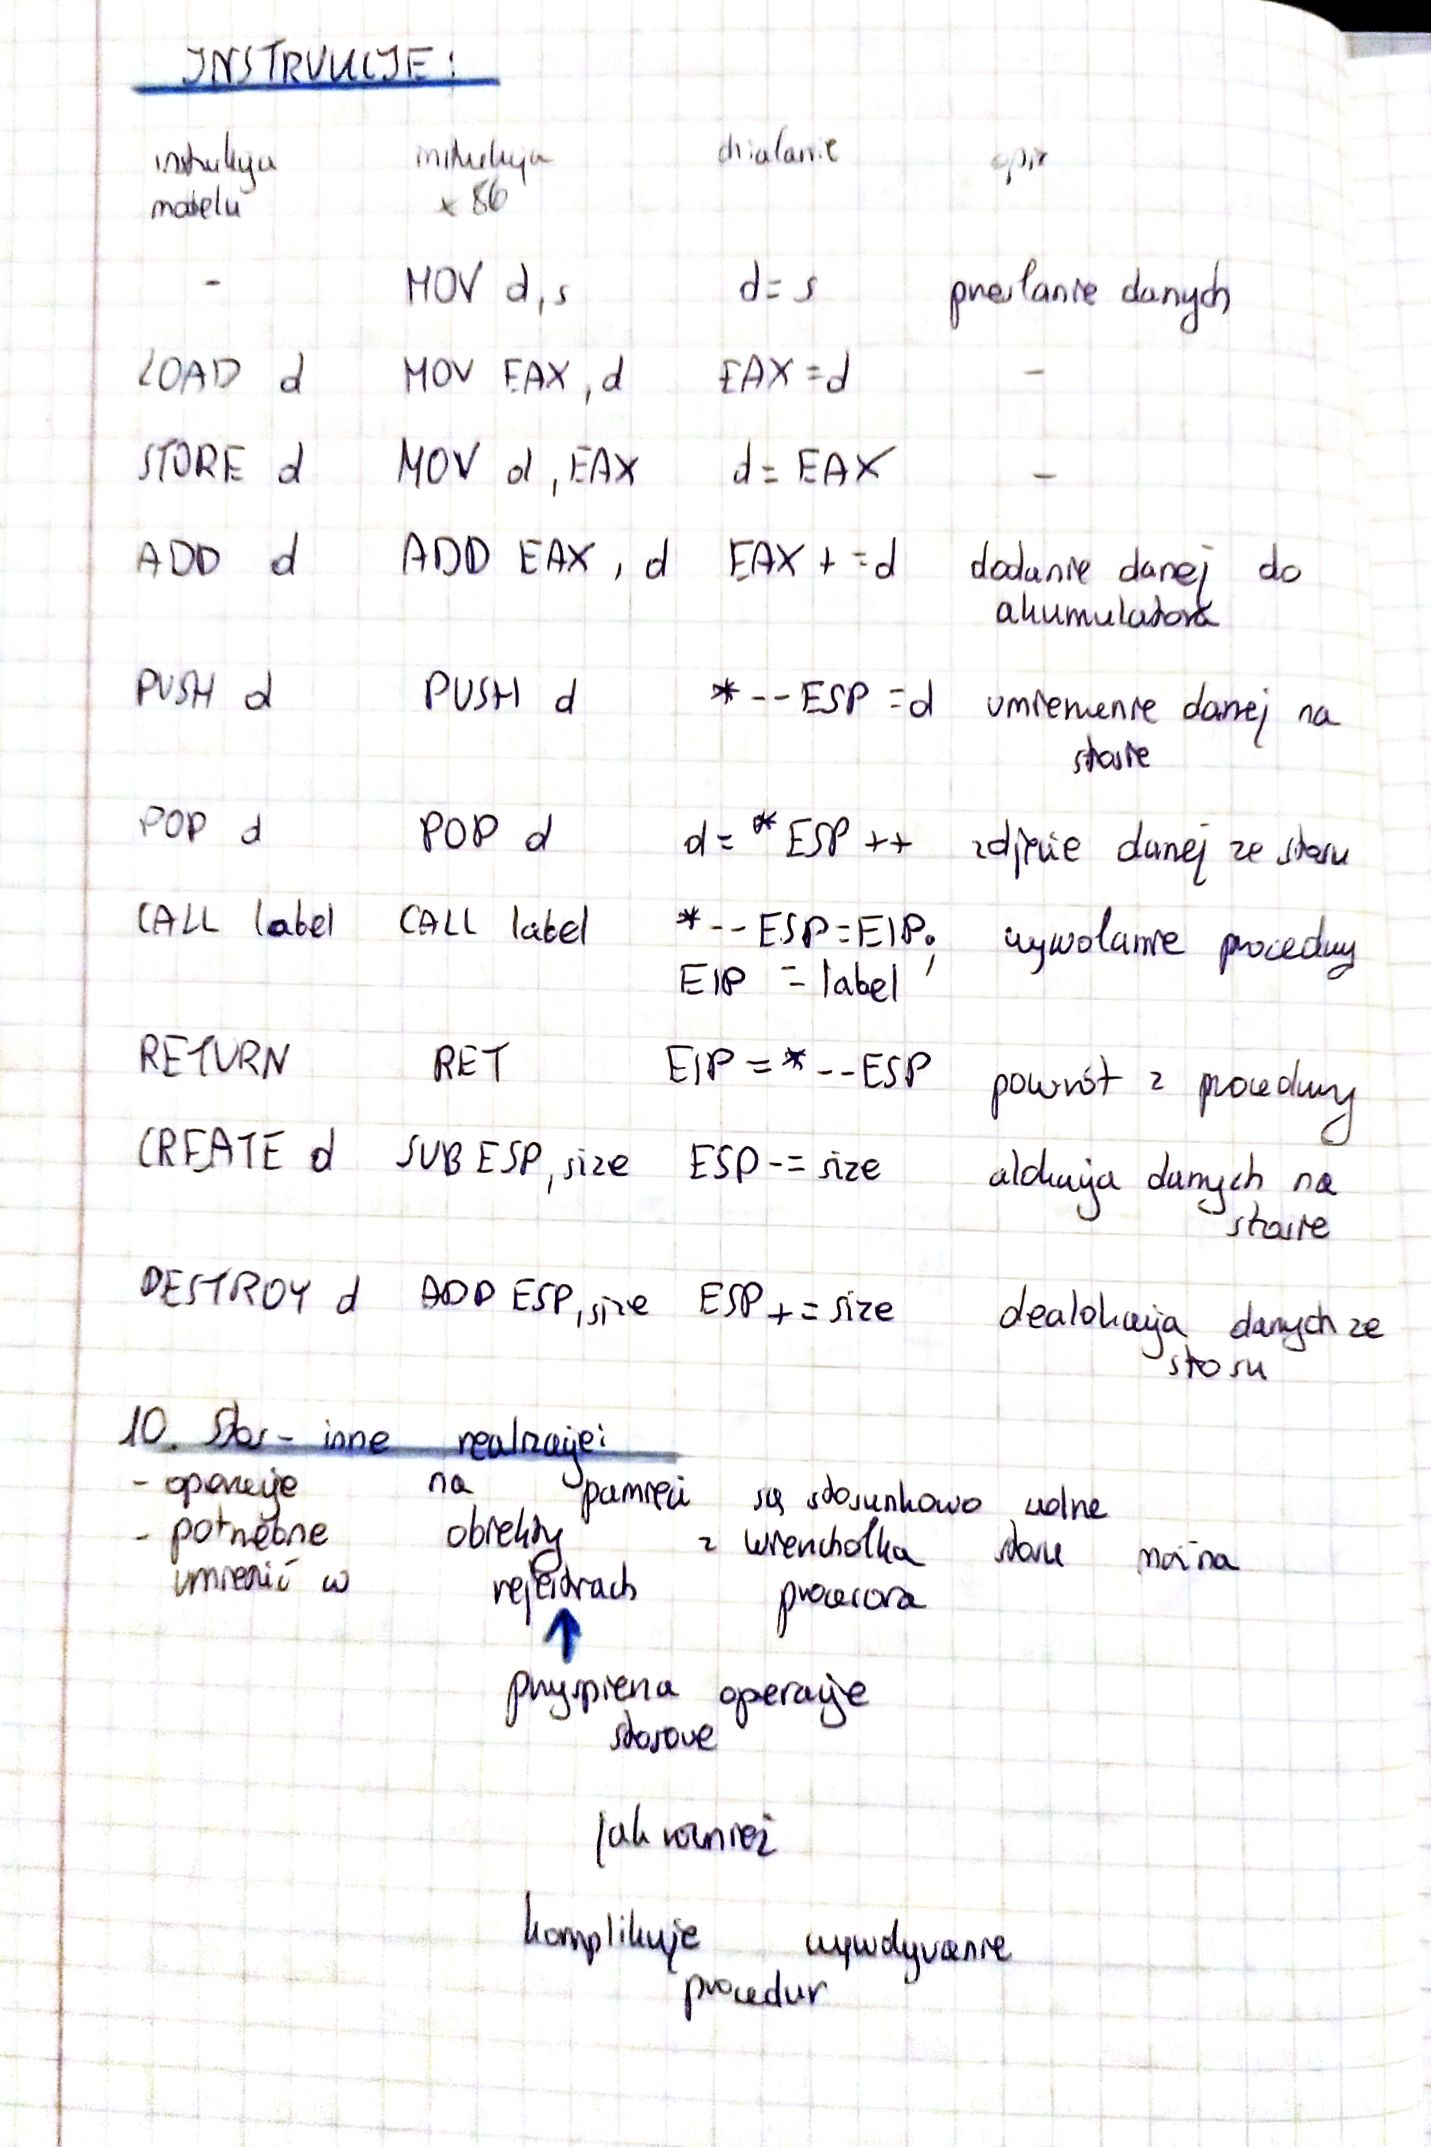 INSTRUKCJE:
instrukcja instrukcja działanie opis
modelu x86
- MOV d,s d=s przesłanie danych
LOAD d MOV EAX,d EAX=d -
STORE d MOV d,EAX d=EAX -
ADD d ADD EAX,d EAX+=d dodanie danej do
akumulatora
PUSH d PUSH d *--ESP=d umieszczenie danej na
stosie
POP d POP d d=*ESP++ zdjęcie danej ze stosu
CALL label CALL label *--ESP=EIP; wywołanie procedury
EIP=label
RETURN RET EIP=*--ESP powrót z procedury
CREATE d SUB ESP,size ESP-=size alokacja danych na
stosie
DESTROY d ADD ESP,size ESP+=size dealokacja danych ze
stosu
10. Stos - inne realizacje:
- operacje na pamięci są stosunkowo wolne
- potrzebne obiekty z wierzchołka stosu można
umieścić w rejestrach procesora
↑
przyspiesza operacje
stosowe
jak również
komplikuje wywoływanie
procedur